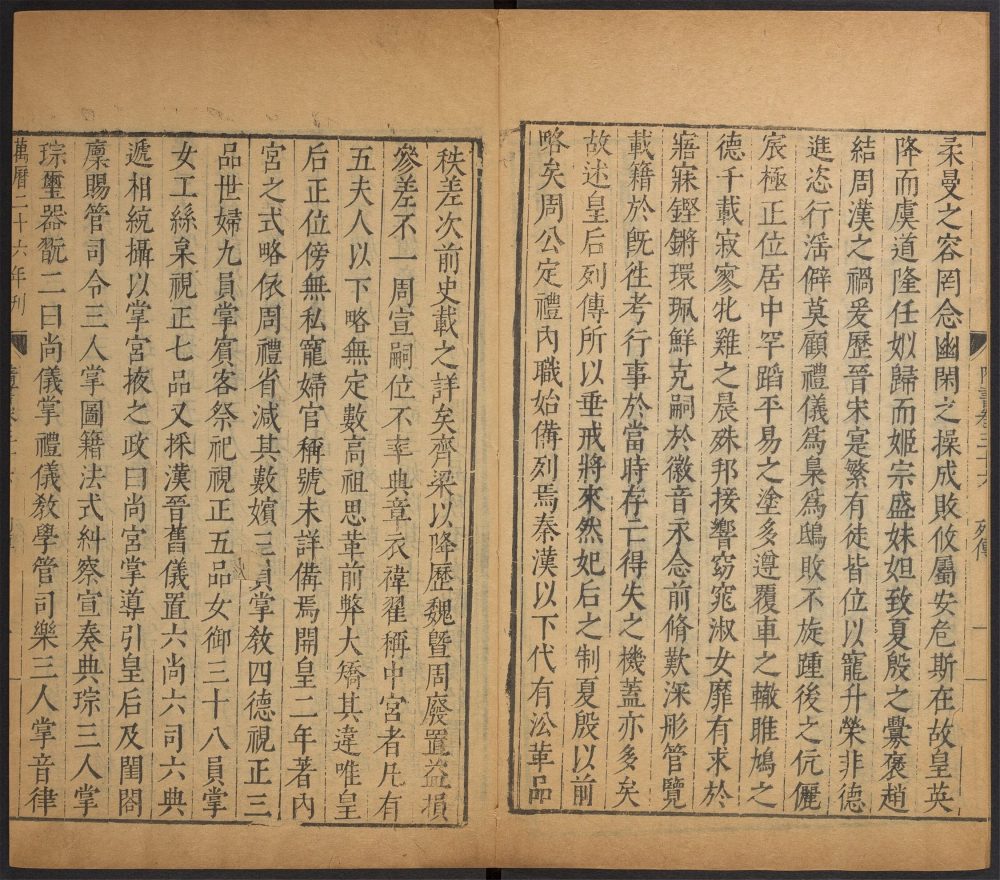 隋書卷三十六 列傳 一
柔曼之容罔念幽閑之操成敗攸屬安危斯在故皇英
降而虞道隆任姒歸而姬宗盛妹妲致夏殷之釁褒趙
結周漢之禍爰歷晉宋寔繁有徒皆位以寵升榮非德
進恣行淫僻莫顧禮儀爲梟爲鴟敗不旋踵後之伉儷
宸極正位居中罕蹈平易之塗多遵覆車之轍雎鳩之
德千載寂寥牝雞之晨殊邦接響窈窕淑女靡有求於
寤寐鏗鏘環珮鮮克嗣於徽音永念前脩歎深彤管覽
載籍於旣往考行事於當時存亡得失之機蓋亦多矣
故述皇后列傳所以垂戒將來然妃后之制夏殷以前
略矣周公定禮內職始備列焉秦漢以下代有沿革品
秩差次前史載之詳矣齊梁以降歷魏曁周廢置益損
參差不一周宣嗣位不率典章衣褘翟稱中宮者凡有
五夫人以下略無定數高祖思革前弊大矯其違唯皇
后正位傍無私寵婦官稱號未詳備焉開皇二年著內
宮之式略依周禮省減其數嬪三員掌敎四德視正三
品世婦九員掌賓客祭祀視正五品女御三十八員掌
女工絲枲視正七品又採漢晉舊儀置六尚六司六典
遞相統攝以掌宮掖之政曰尚宮掌導引皇后及閨閤
廩賜管司令三人掌圖籍法式糾察宣奏典琮三人掌
琮璽器翫二曰尚儀掌禮儀敎學管司樂三人掌音律
萬曆二十六年刊